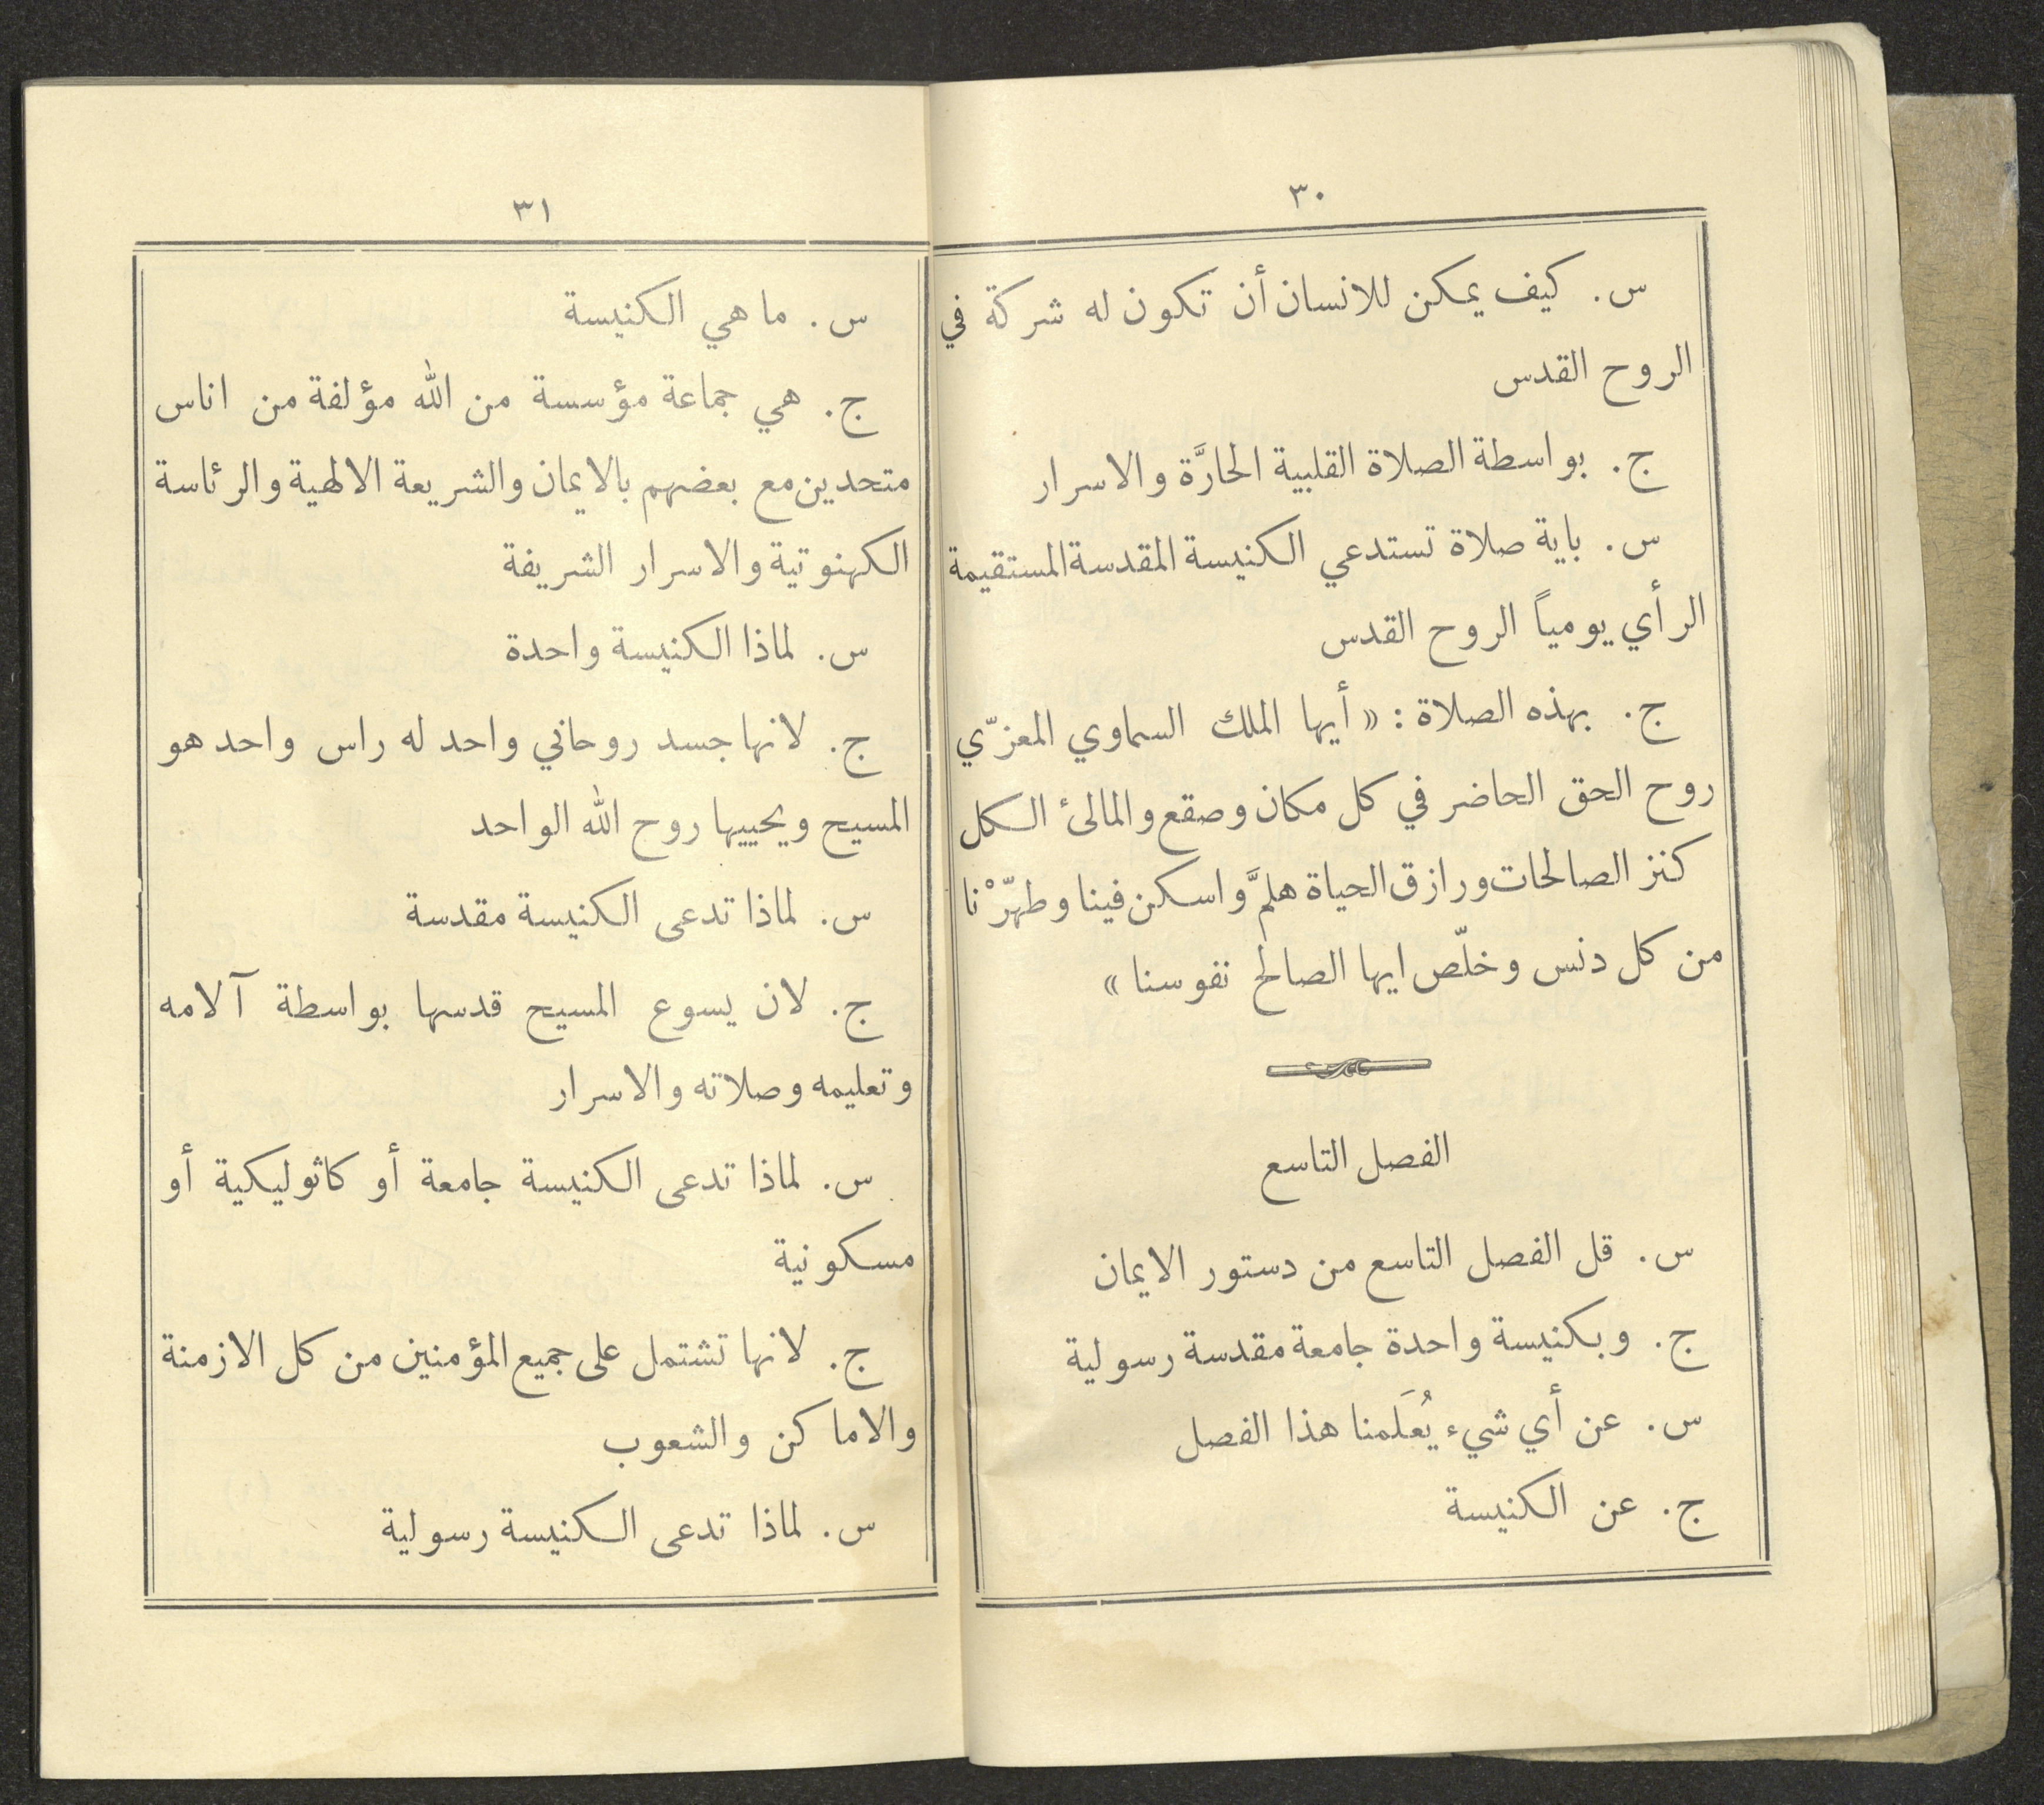 ٣٠
س. كيف يمكن للانسان أن تكون له شركة في
الروح القدس
ج. بواسطة الصلاة القلبية الحارَّة والاسرار
س. باية صلاة تستدعي الكنيسة المقدسة المستقيمة
الرأي يومياً الروح القدس
ج. بهذه الصلاة: «أيها الملك السماوي المعزّي
روح الحق الحاضر في كل مكان وصقع والمالئ الكل
كنز الصالحات ورازق الحياة هلمَّ واسكن فينا وطهّرْنا
من كل دنس وخلّص ايها الصالح نفوسنا»
الفصل التاسع
س. قل الفصل التاسع من دستور الايمان
ج. وبكنيسة واحدة جامعة مقدسة رسولية
س. عن أي شيء يُعَلمنا هذا الفصل
ج. عن الكنيسة
٣١
س. ما هي الكنيسة
ج. هي جماعة مؤسسة من الله مؤلفة من اناس
متحدين مع بعضهم بالايمان والشريعة الالهية والرئاسة
الكهنوتية والاسرار الشريفة
س. لماذا الكنيسة واحدة
ج. لانها جسد روحاني واحد له راس واحد هو
المسيح ويحييها روح الله الواحد
س. لماذا تدعى الكنيسة مقدسة
ج. لان يسوع المسيح قدسها بواسطة آلامه
وتعليمه وصلاته والاسرار
س. لماذا تدعى الكنيسة جامعة أو كاثوليكية أو
مسكونية
ج. لانها تشتمل على جميع المؤمنين من كل الازمنة
والاماكن والشعوب
س. لماذا تدعى الكنيسة رسولية